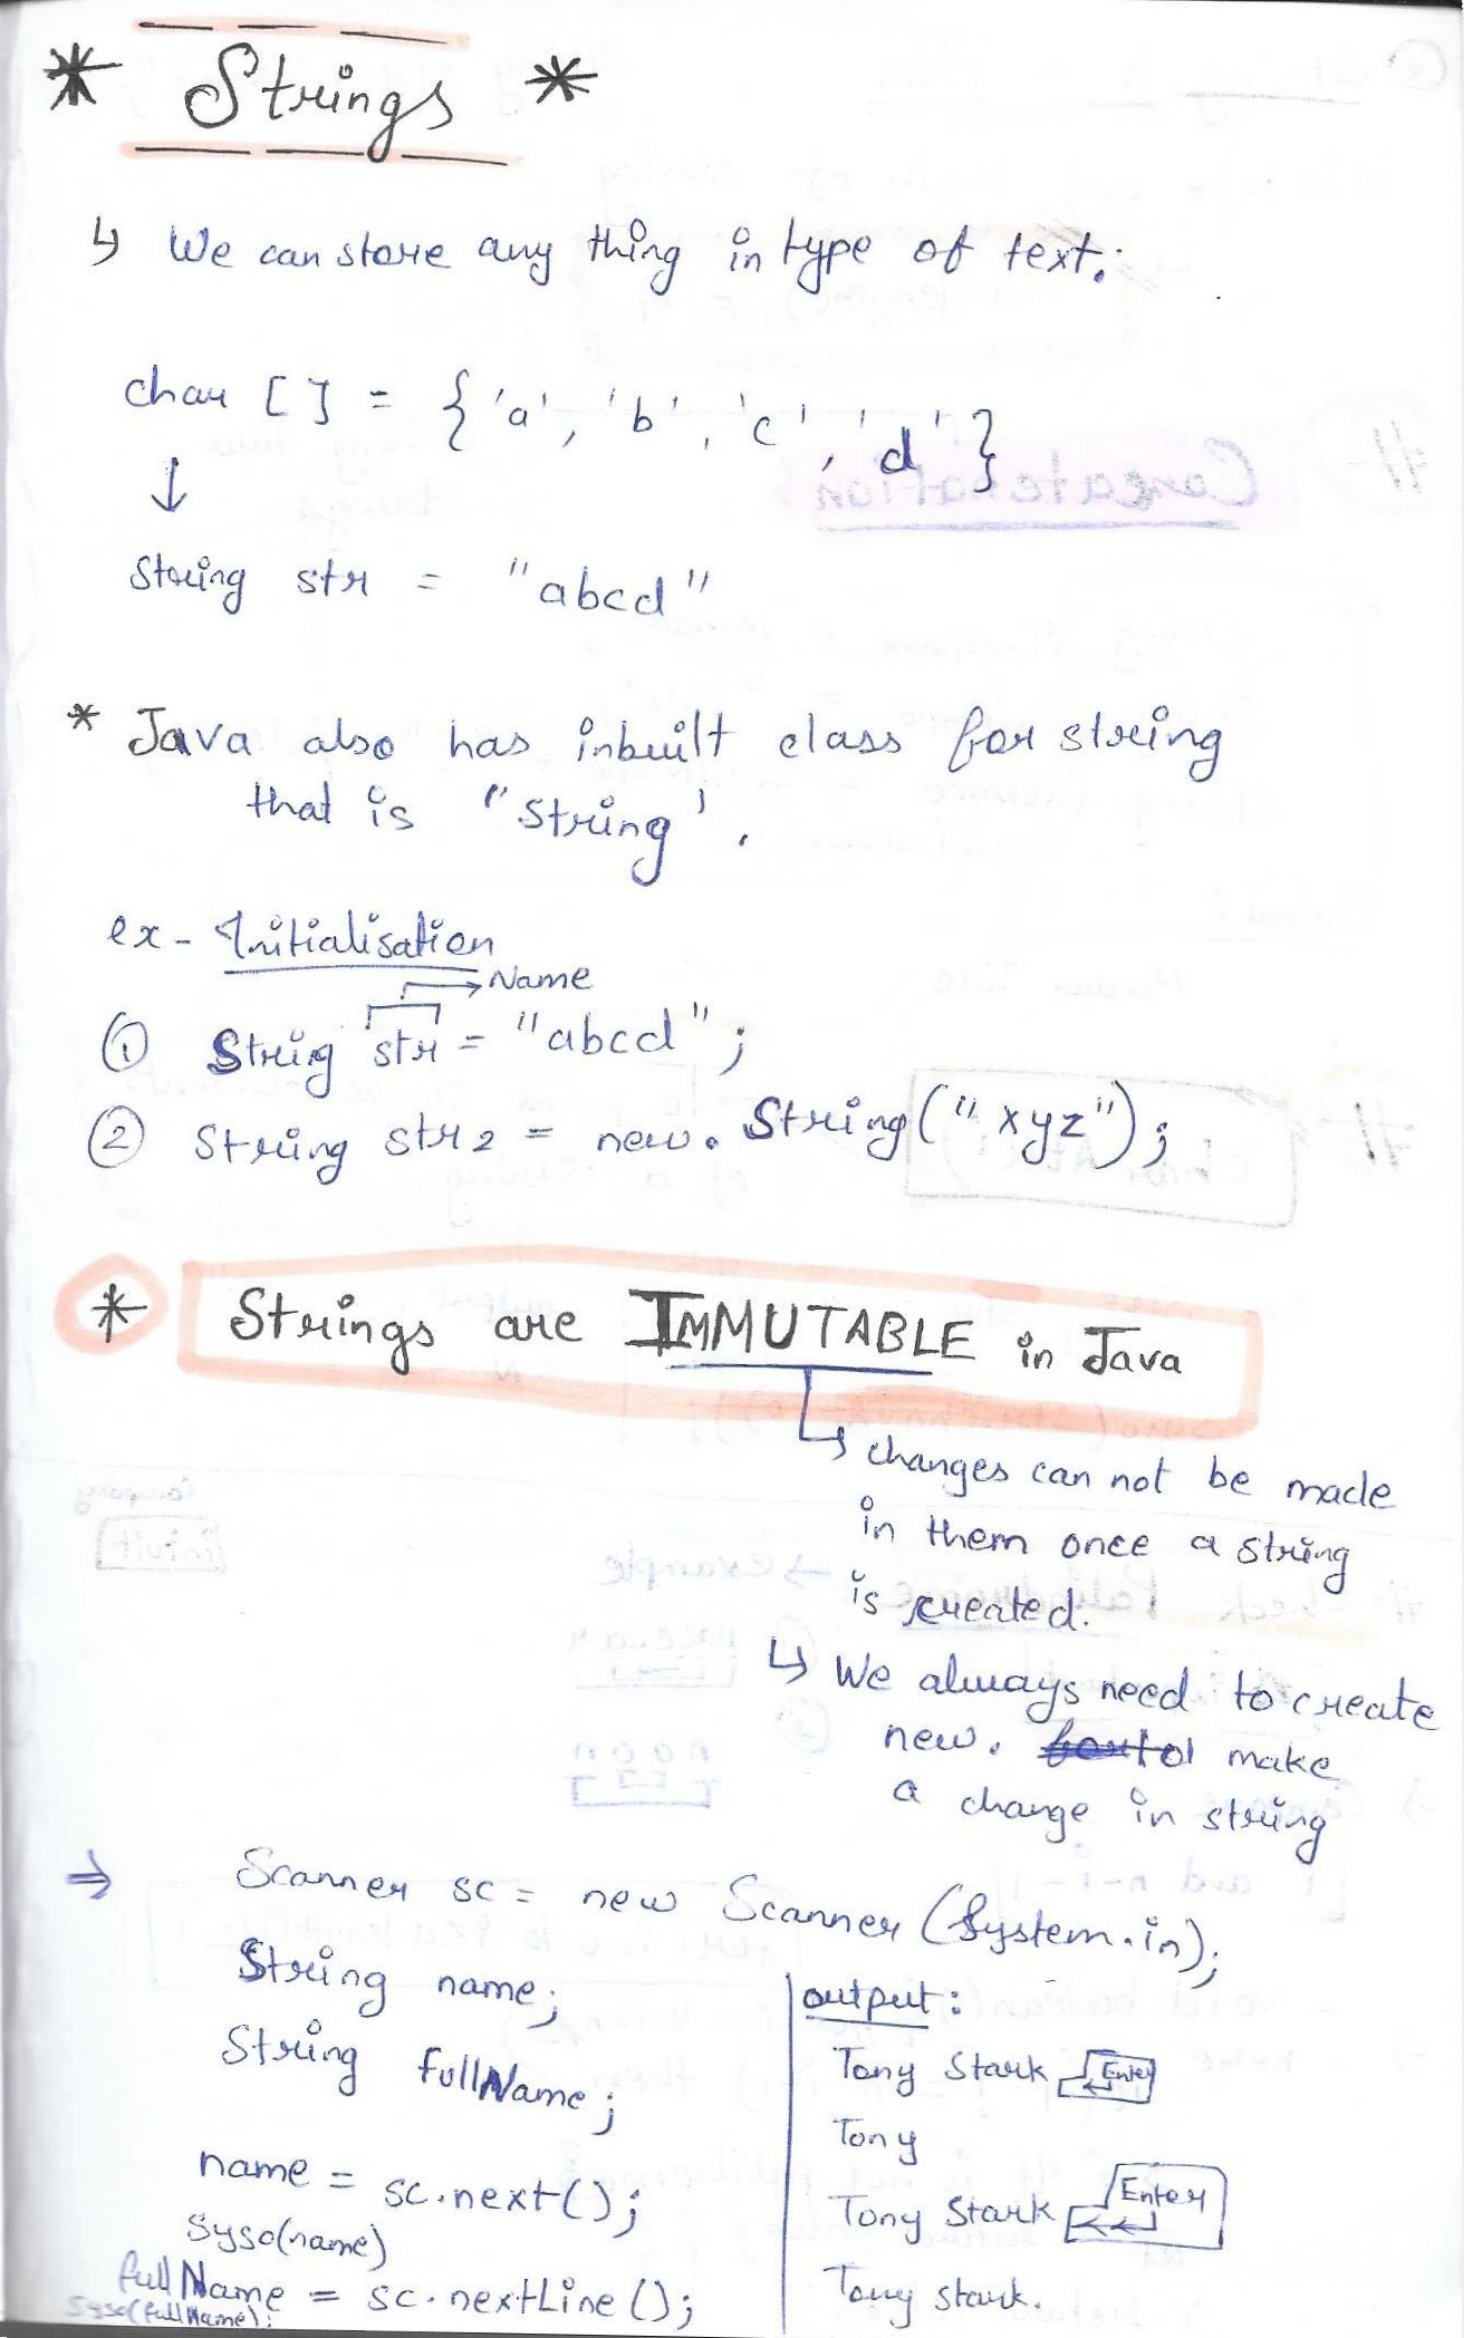 * Strings *
↳ We can store any thing in type of text.
char [] = {'a', 'b', 'c', 'd'}
↓
String str = "abcd"
* Java also has inbuilt class for string
that is "String'.
ex - Initialisation
→ Name
① String str = "abcd";
② String str2 = new. String("xyz");
* Strings are IMMUTABLE in Java
↳ changes can not be made
in them once a string
is created.
↳ We always need to create
new. make
a change in string
⇒ Scanner sc = new Scanner (System.in);
String name;
String fullName;
name = sc.next();
Syso(name)
fullName = sc.nextLine();
Syso(fullName);
output:
Tony Stark Enter
Tony
Tony Stark Enter
Tony stark.